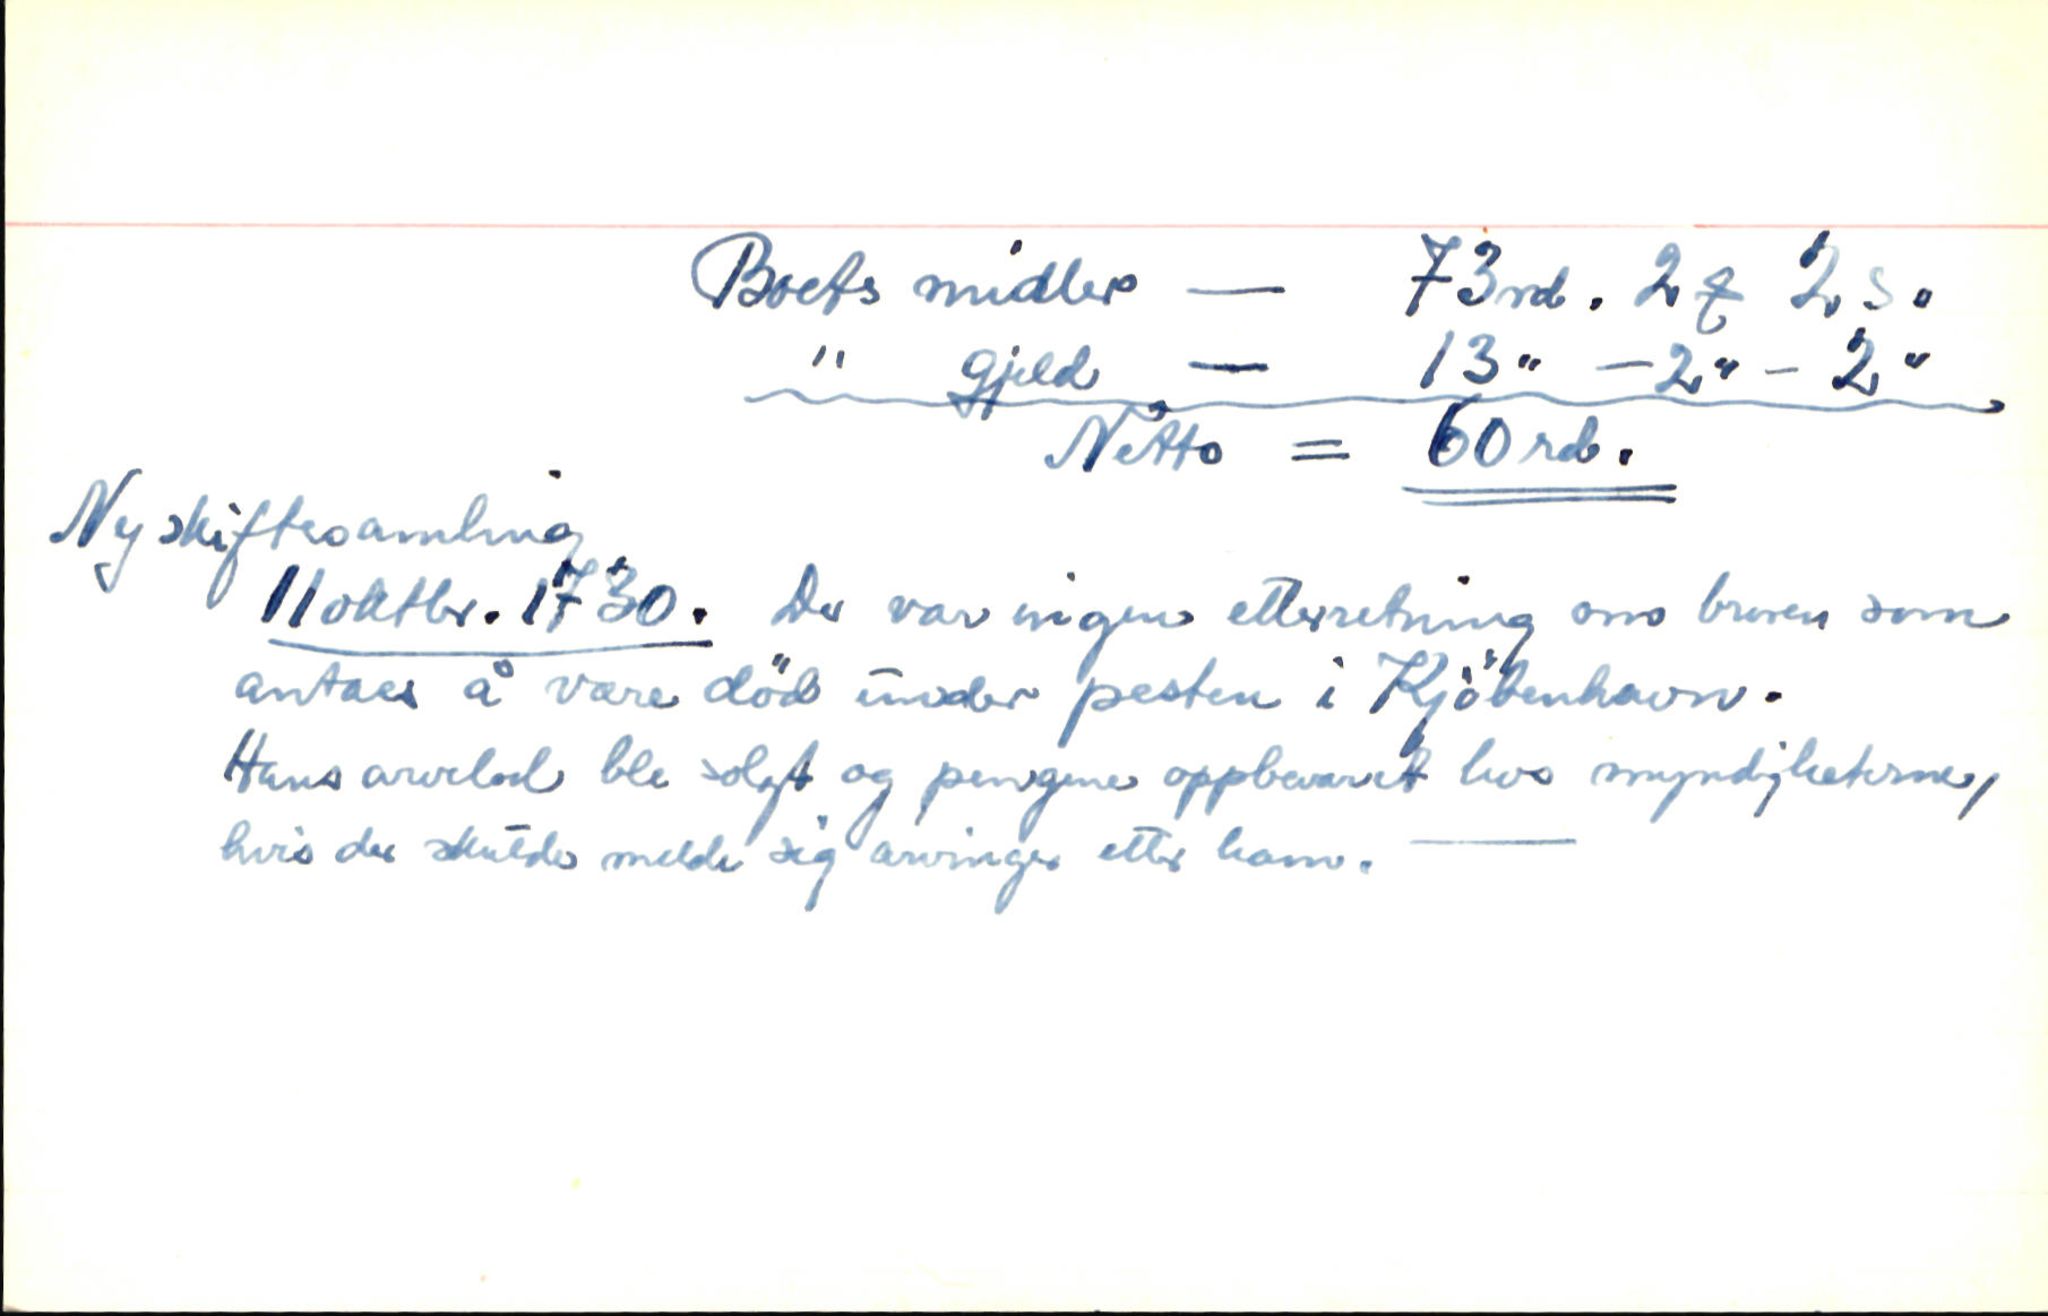 Boets midler — 73 rd. 2 ₰ 2 s.
" Gjeld — 13 " - 2 " - 2 "
Netto = 60 rd.
Ny skiftesamling
11 oktbr. 1730. Der var ingen etterretning om broren som
antaes å være död under pesten i Kjöbenhavn.
Hans arvelod ble solgt og pengene oppbevaret hos myndigheterne,
hvis der skulde melde sig arvinger etter ham. —